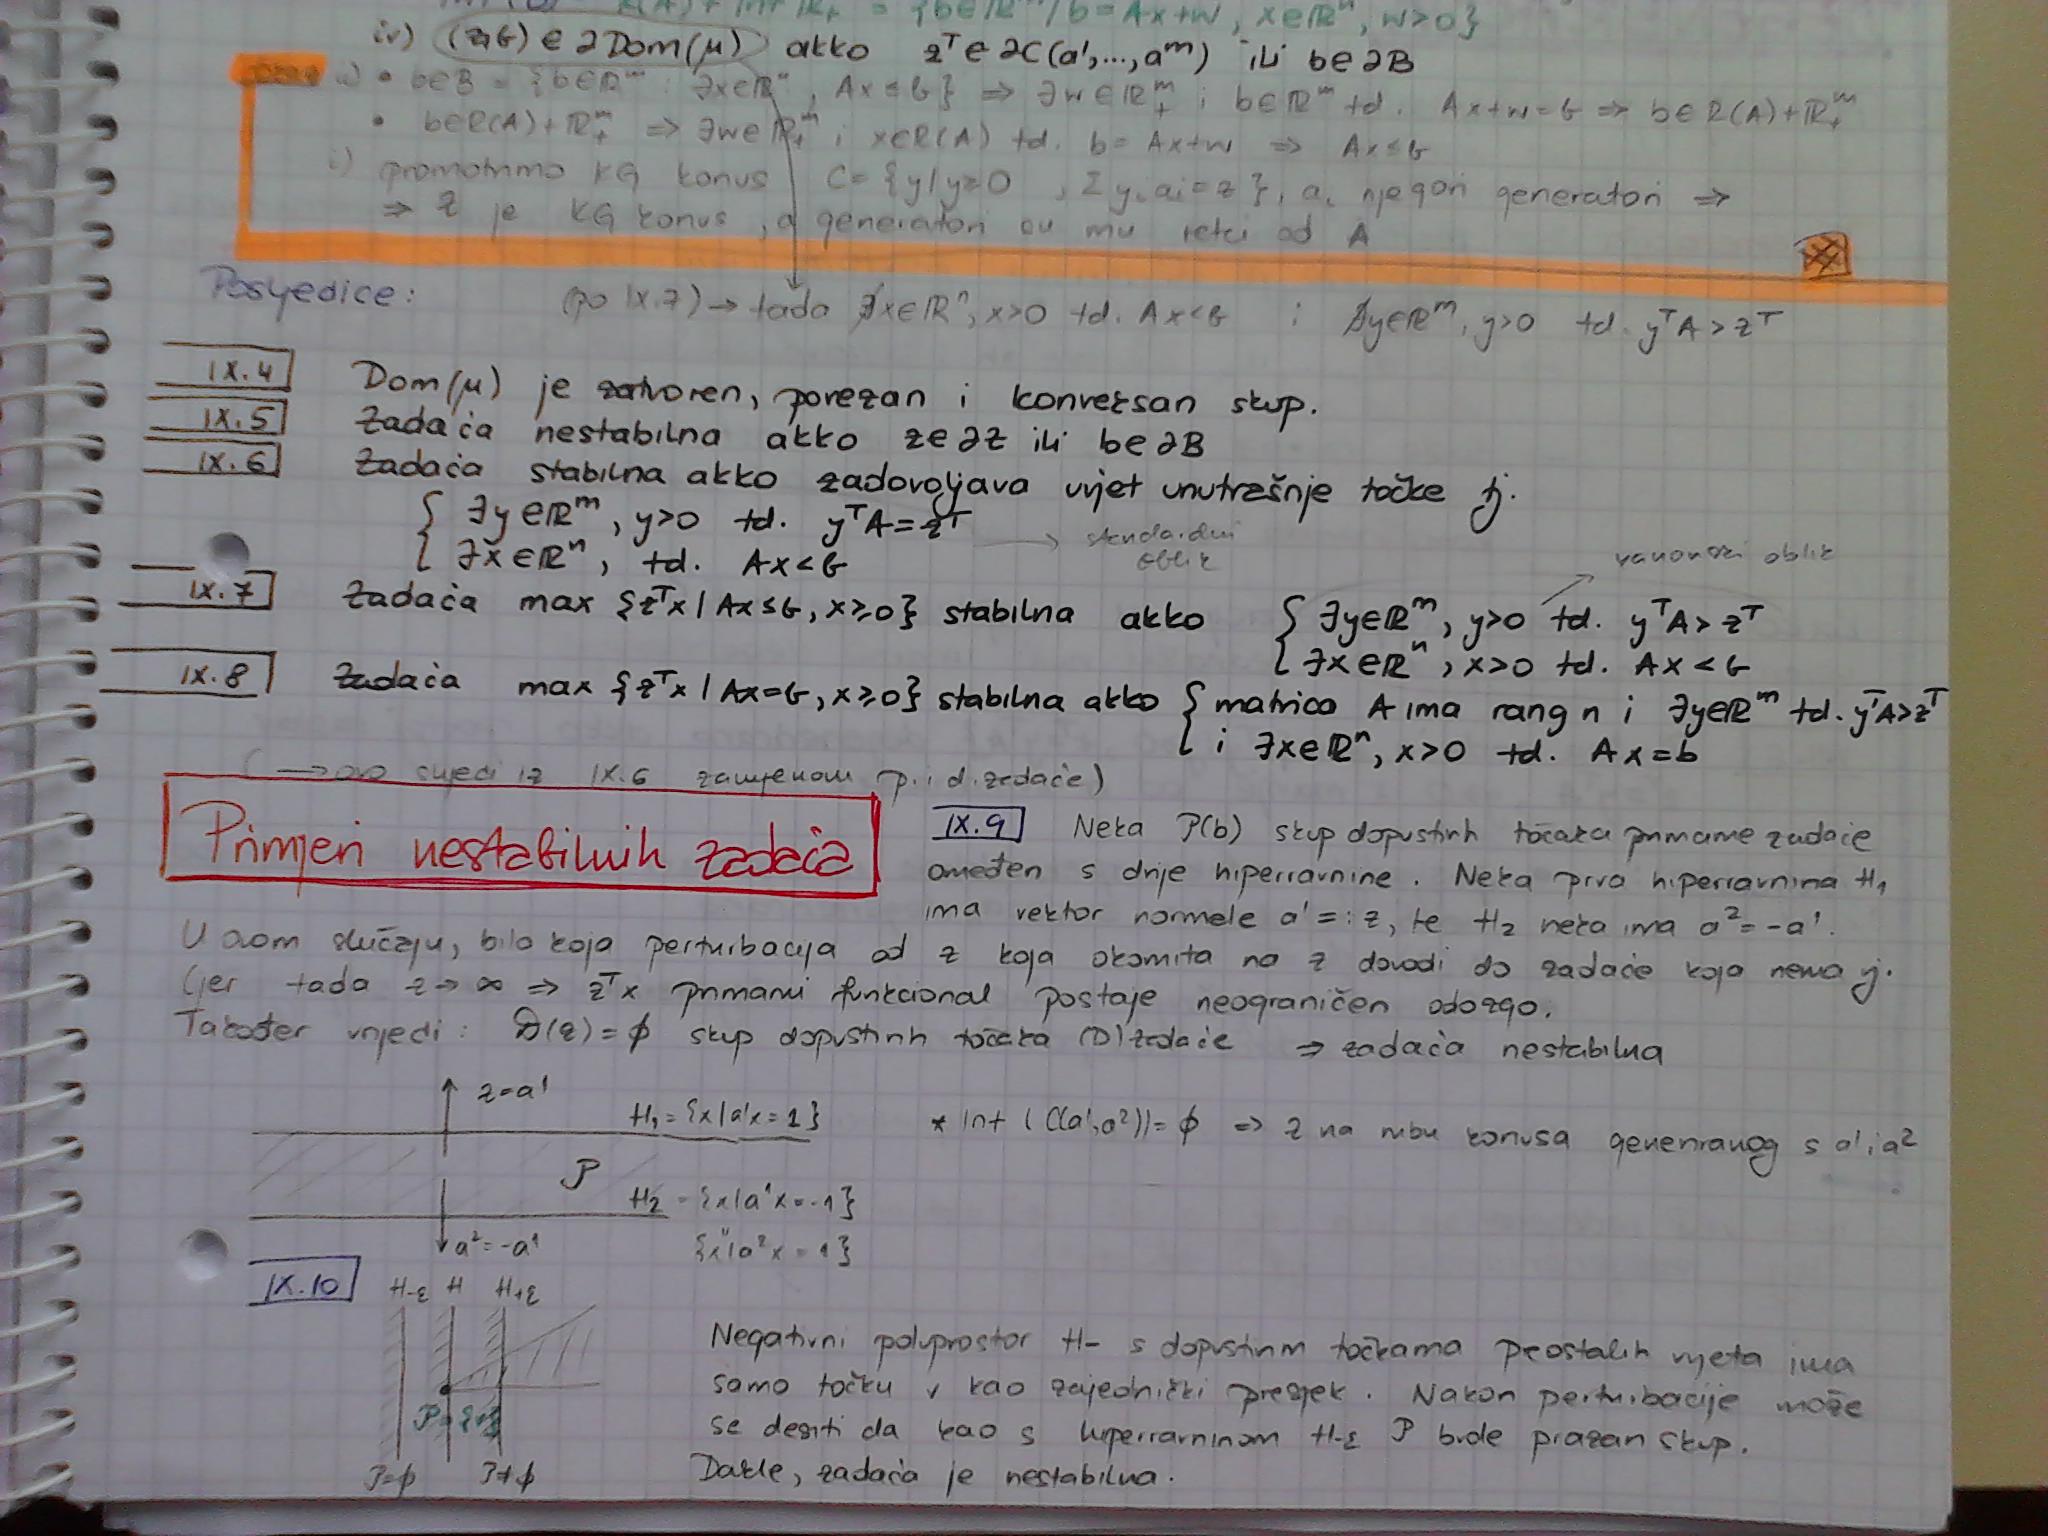 = R(A) + int R₊ = {b∈ℝᵐ / b=Ax+w, x∈ℝⁿ, w>0}
iv) (z,b) ∈ ∂Dom(μ) akko zᵀ∈ ∂C(a¹,...,aᵐ) ili b∈∂B
• b∈B = {b∈ℝᵐ : ∃x∈ℝⁿ, Ax≤b} ⇒ ∃w∈ℝ₊ᵐ i b∈ℝᵐ td. Ax+w=b ⇒ b∈R(A)+ℝ₊ᵐ
• b∈R(A)+ℝ₊ᵐ ⇒ ∃w∈ℝ₊ᵐ i x∈R(A) td. b=Ax+w ⇒ Ax≤b
i) promotrimo KG konus C={y/y≥0, Σyᵢaᵢ=z}, aᵢ njegovi generatori ⇒
⇒ z je KG konus, a generatori su mu retci od A
Posljedice: (po IX.7) → tada ∄x∈ℝⁿ, x>0 td. Ax<b i ∄y∈ℝᵐ, y>0 td. yᵀA>zᵀ
IX.4 Dom(μ) je zatvoren, povezan i konveksan skup.
IX.5 Zadaća nestabilna akko z∈∂Z ili b∈∂B
IX.6 Zadaća stabilna akko zadovoljava uvjet unutrašnje točke tj.
{ ∃y∈ℝᵐ, y>0 td. yᵀA=zᵀ → standardni
∃x∈ℝⁿ, td. Ax<b oblik
kanonski oblik
IX.7 Zadaća max {zᵀx | Ax≤b, x≥0} stabilna akko { ∃y∈ℝᵐ, y>0 td. yᵀA>zᵀ
∃x∈ℝⁿ, x>0 td. Ax<b
IX.8 Zadaća max {zᵀx | Ax=b, x≥0} stabilna akko { matrica A ima rang n i ∃y∈ℝᵐ td. yᵀA>zᵀ
i ∃x∈ℝⁿ, x>0 td. Ax=b
(→ ovo slijedi iz IX.6 zamjenom p. i d. zadaće)
Primjeri nestabilnih zadaća
IX.9 Neka P(b) skup dopustivih točaka primarne zadaće
omeđen s dvije hiperravnine. Neka prva hiperravnina H₁
ima vektor normale a¹=:z, te H₂ neka ima a²=-a¹.
U ovom slučaju, bilo koja perturbacija od z koja okomita na z dovodi do zadaće koja nema rj.
(jer tada z→∞ ⇒ zᵀx primarni funkcional postaje neograničen odozgo.
Također vrijedi: D(z)=∅ skup dopustivih točaka (D) zadaće ⇒ zadaća nestabilna
z=a¹
H₁={x|a¹x=1}
* Int (C(a¹,a²))=∅ ⇒ z na rubu konusa generiranog s a¹ i a²
P
H₂={x|a¹x=-1}
a²=-a¹
{x|a²x=1}
IX.10
H-ε H H+ε
P={v}
P=∅ P≠∅
Negativni poluprostor H- s dopustivim točkama preostalih uvjeta ima
samo točku v kao zajednički presjek. Nakon perturbacije može
se desiti da kao s hiperravninom H-ε P bude prazan skup.
Dakle, zadaća je nestabilna.